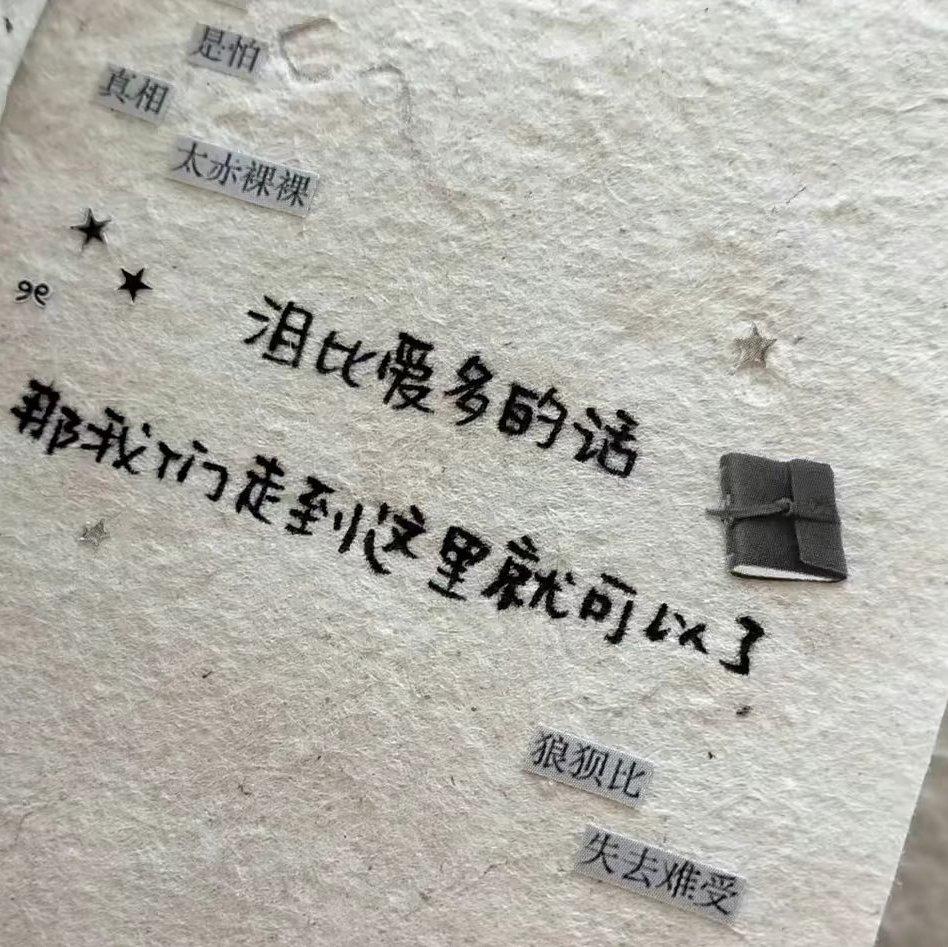 是怕
真相
太赤裸裸
泪比爱多的话
那我们走到这里就可以了
狼狈比
失去难受